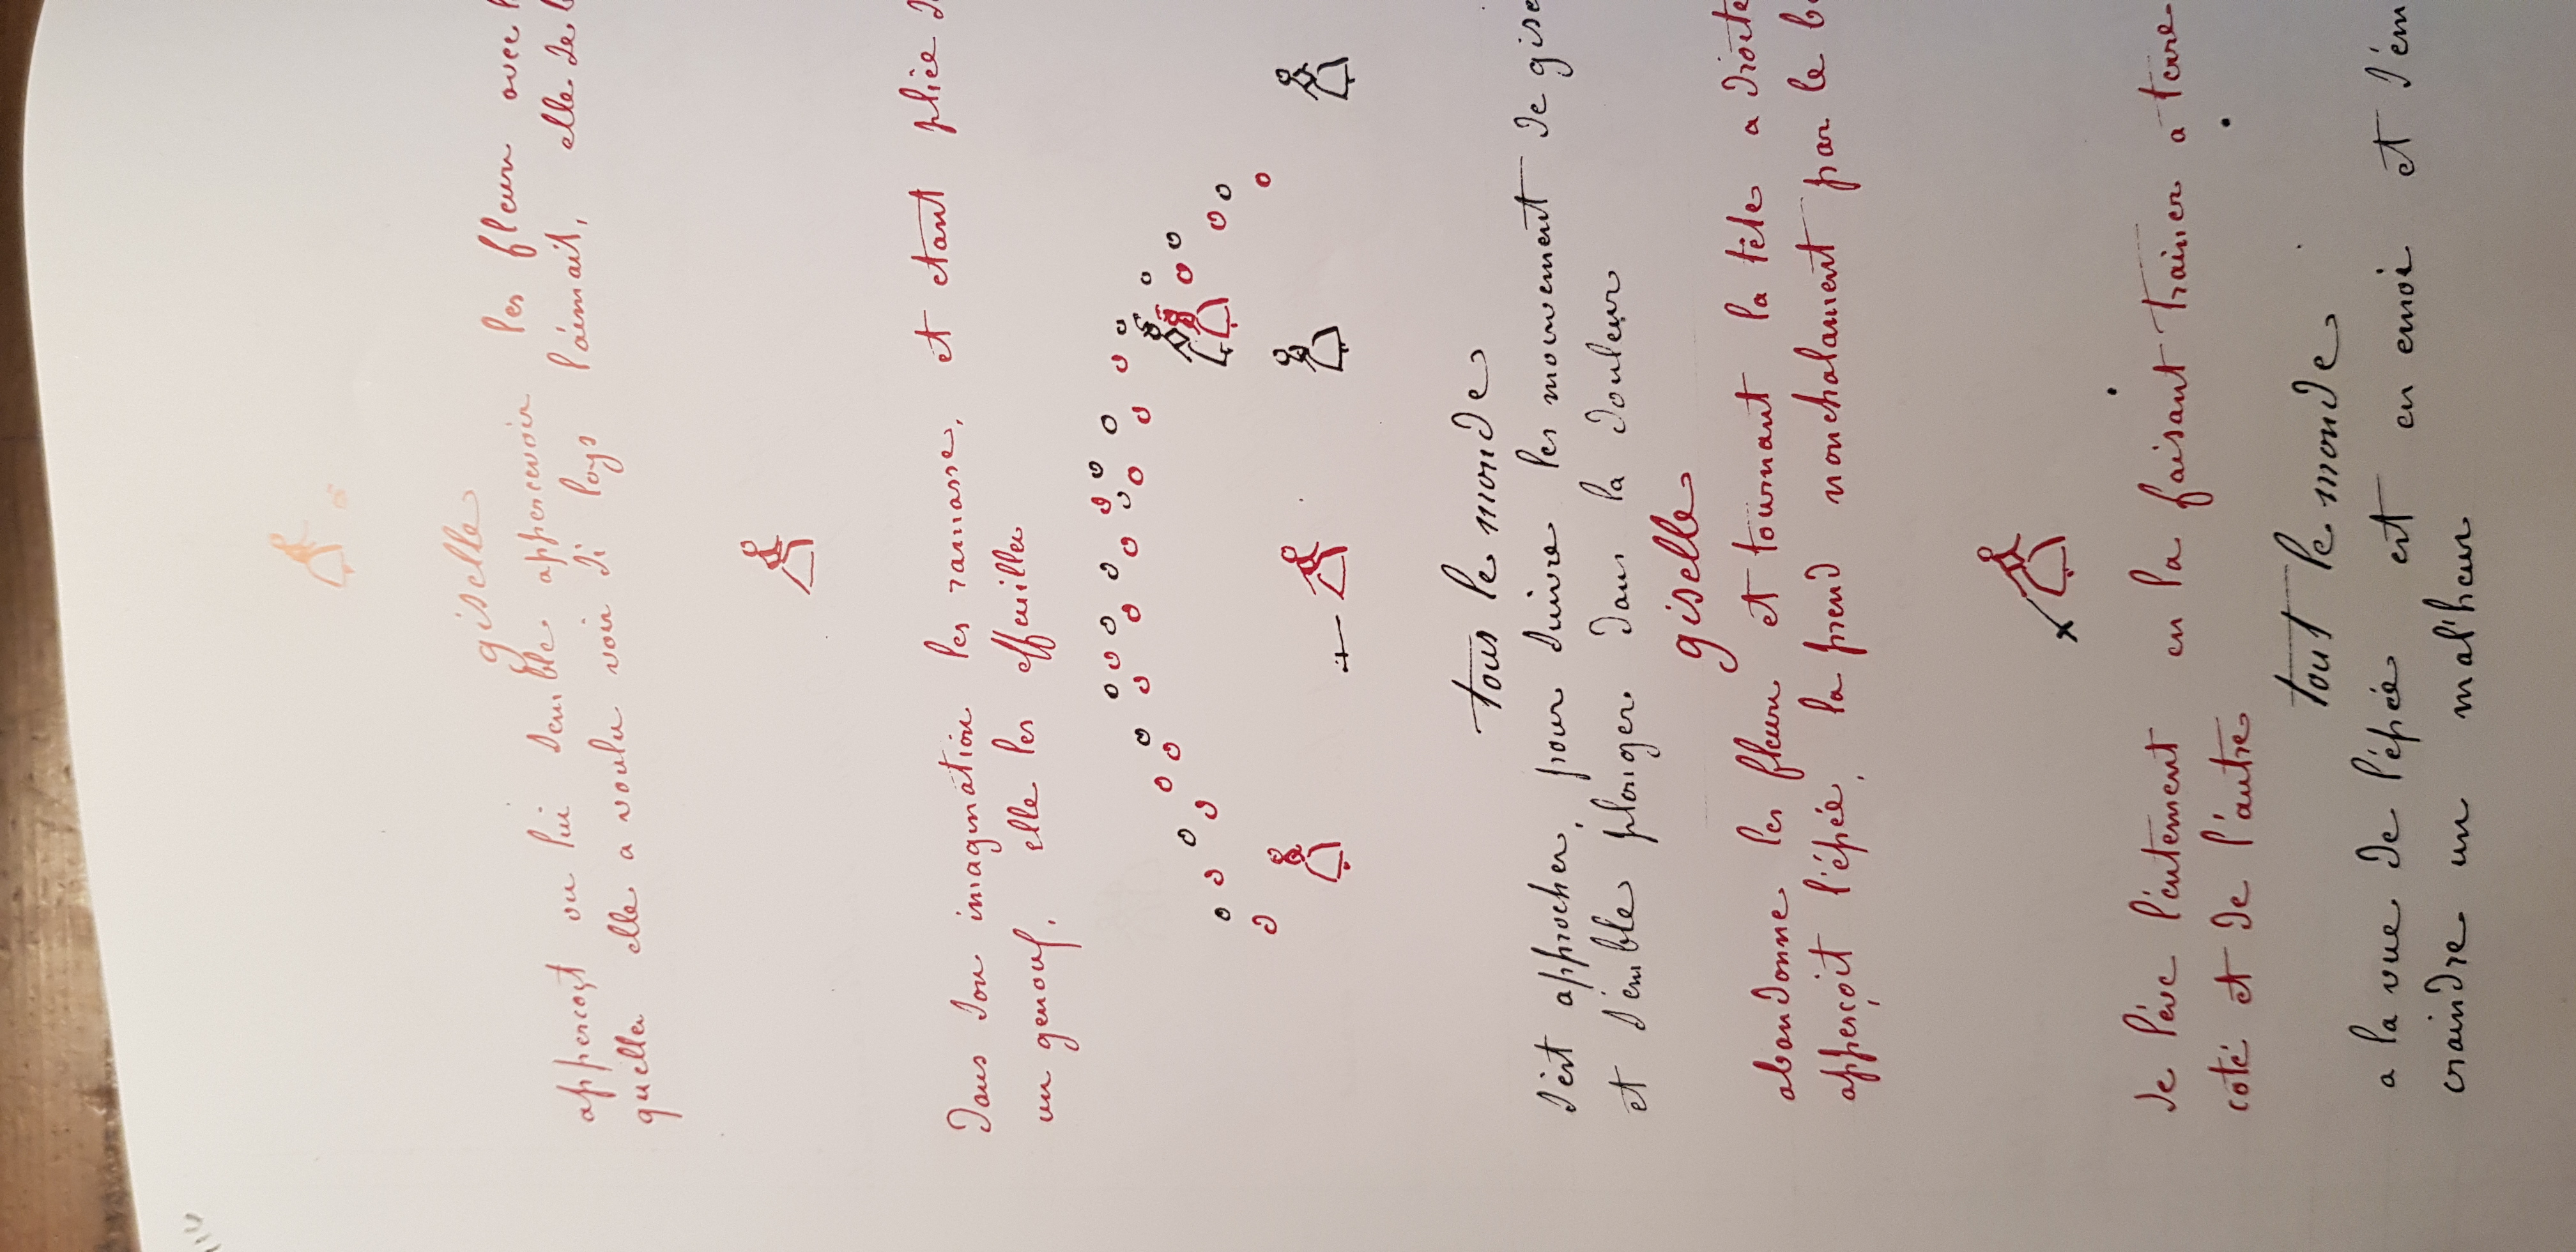 giselle
apperçoit ou lui semble appercevoir les fleur avec
quelle elle a voulu voir si loys l'aimait, elle se
Dans son imagination les ramasse, et etant pliée
un genouf, elle les effeuilles
tous le monde
s'est approcher, pour suivre les mouvement de gise
et s'emble plonger dans la douleur
giselle
abandonne les fleurs et tournant la tête a droite
apperçoit l'épée, la prend nonchalament par le
se léve lentement en la faisant trainer a terre
coté et de l'autre
tout le monde
a la vue de l'épée est en emoi et s'em
craindre un mal'heur